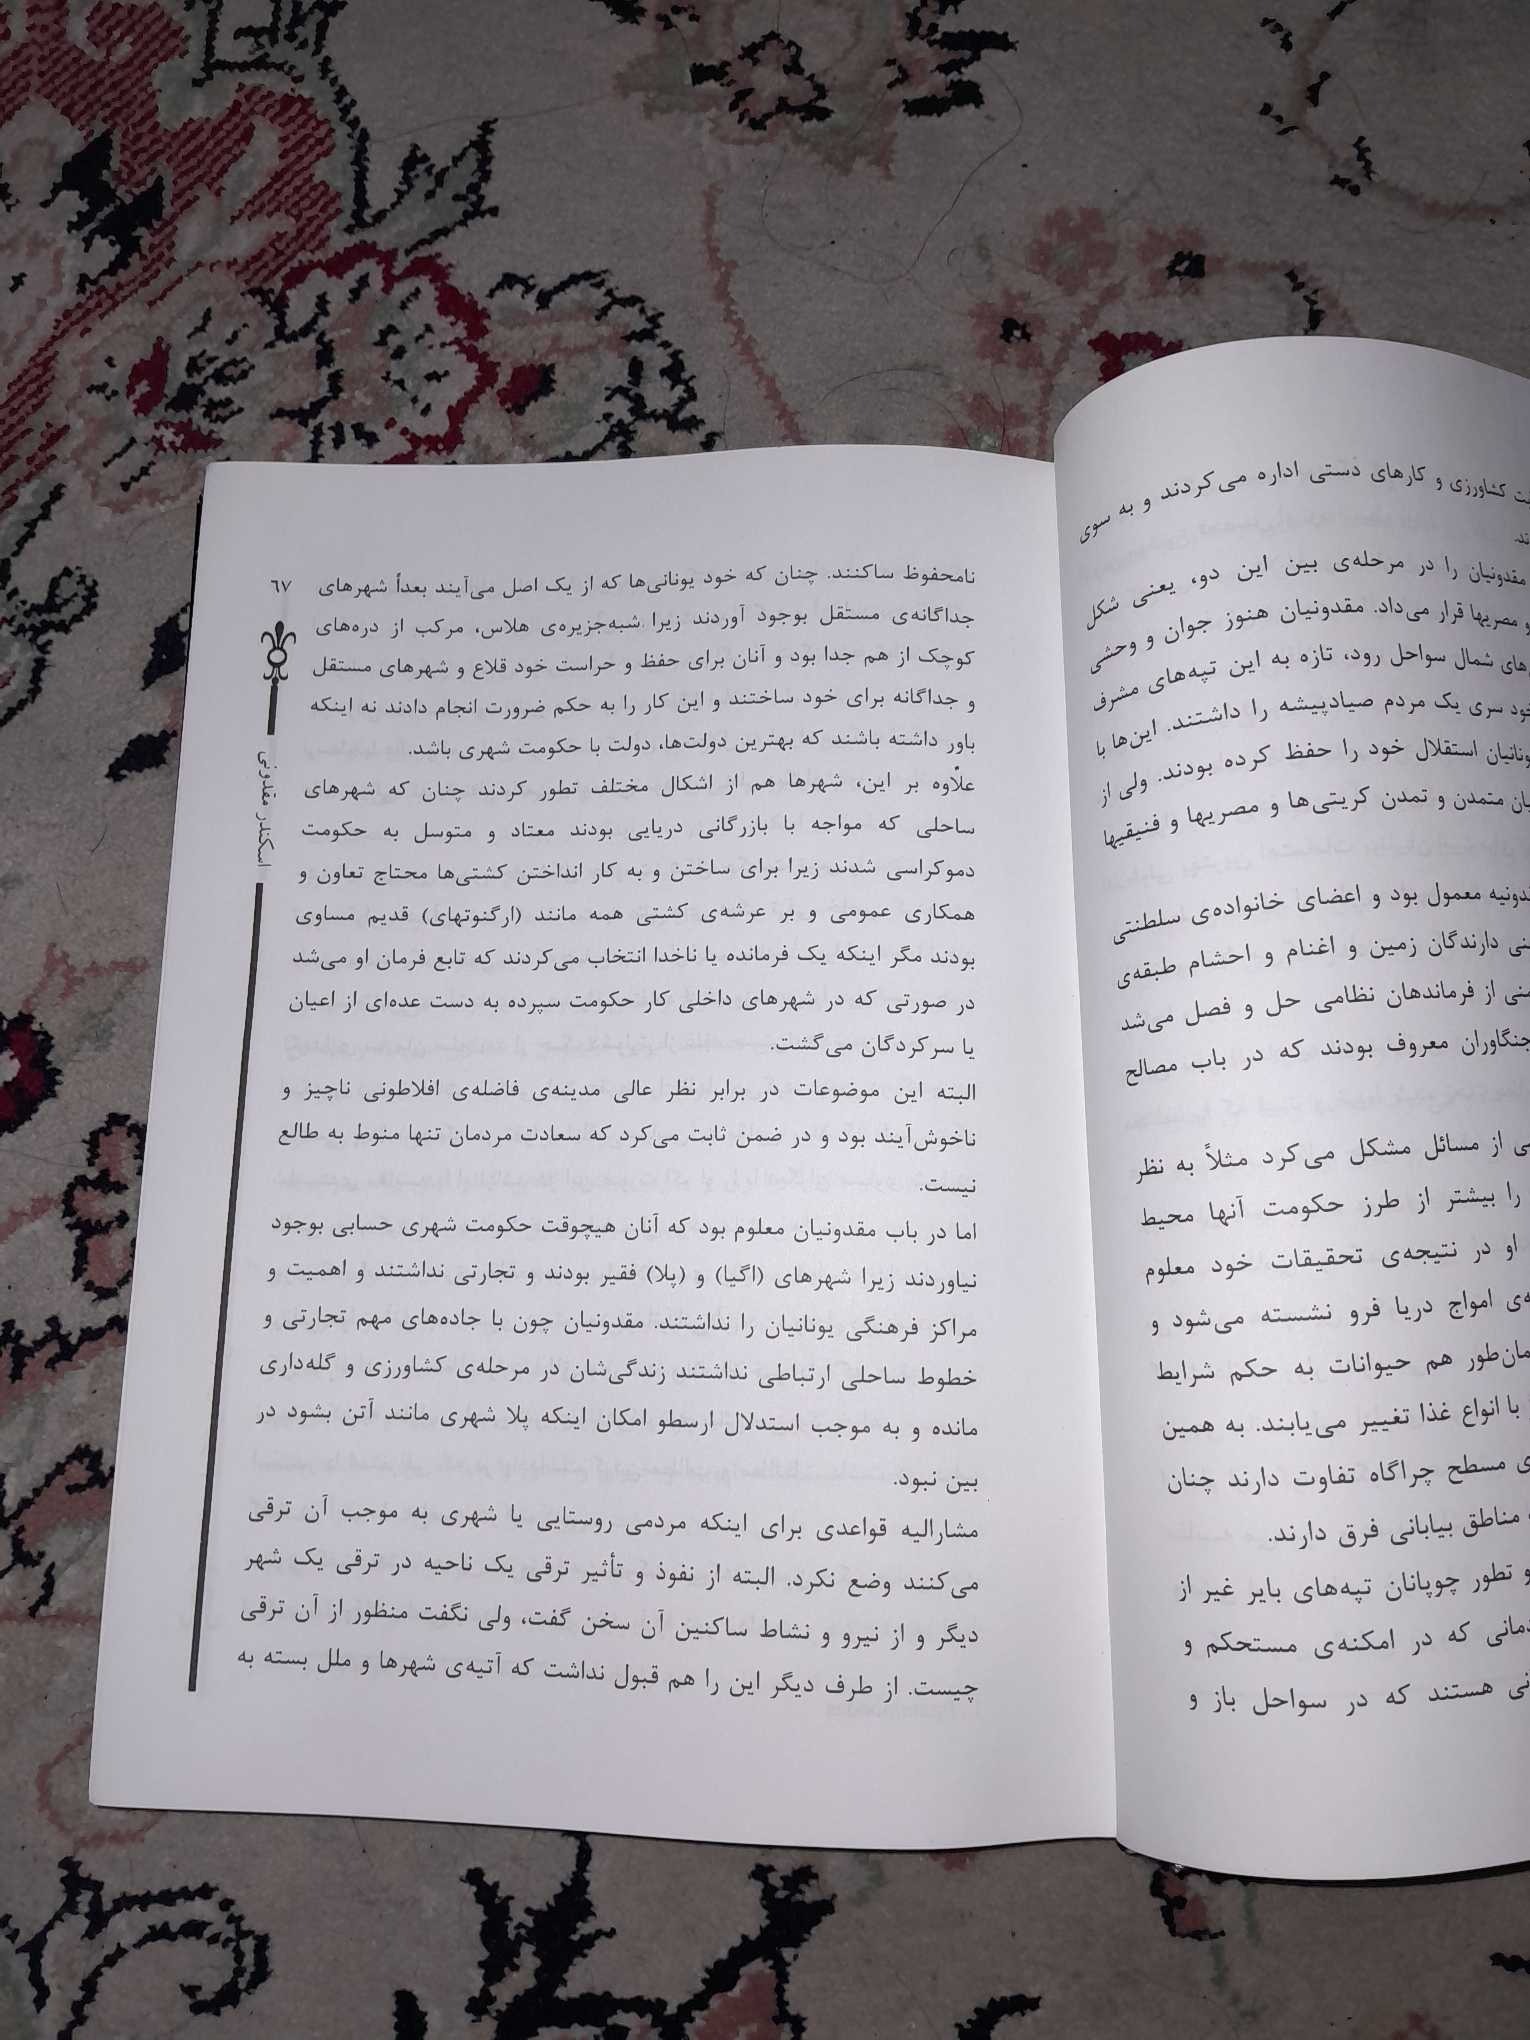 کشاورزی و کارهای دستی اداره می‌کردند و به سوی
مقدونیان را در مرحله‌ی بین این دو، یعنی شکل
و مصریها قرار می‌داد. مقدونیان هنوز جوان و وحشی
شمال سواحل رود، تازه به این تپه‌های مشرف
سری یک مردم صیادپیشه را داشتند. این‌ها با
استقلال خود را حفظ کرده بودند. ولی از
متمدن و تمدن کریتی‌ها و مصریها و فنیقیها
معمول بود و اعضای خانواده‌ی سلطنتی
دارندگان زمین و اغنام و احشام طبقه‌ی
از فرماندهان نظامی حل و فصل می‌شد
جنگاوران معروف بودند که در باب مصالح
از مسائل مشکل می‌کرد مثلاً به نظر
را بیشتر از طرز حکومت آنها محیط
او در نتیجه‌ی تحقیقات خود معلوم
امواج دریا فرو نشسته می‌شود و
هم حیوانات به حکم شرایط
با انواع غذا تغییر می‌یابند. به همین
مسطح چراگاه تفاوت دارند چنان
مناطق بیابانی فرق دارند.
و تطور چوپانان تپه‌های بایر غیر از
که در امکنه‌ی مستحکم و
هستند که در سواحل باز و
۶۷
اسکندر مقدونی
نامحفوظ ساکنند. چنان که خود یونانی‌ها که از یک اصل می‌آیند بعداً شهرهای
جداگانه‌ی مستقل بوجود آوردند زیرا شبه‌جزیره‌ی هلاس، مرکب از دره‌های
کوچک از هم جدا بود و آنان برای حفظ و حراست خود قلاع و شهرهای مستقل
و جداگانه برای خود ساختند و این کار را به حکم ضرورت انجام دادند نه اینکه
باور داشته باشند که بهترین دولت‌ها، دولت با حکومت شهری باشد.
علاوه بر این، شهرها هم از اشکال مختلف تطور کردند چنان که شهرهای
ساحلی که مواجه با بازرگانی دریایی بودند معتاد و متوسل به حکومت
دموکراسی شدند زیرا برای ساختن و به کار انداختن کشتی‌ها محتاج تعاون و
همکاری عمومی و بر عرشه‌ی کشتی همه مانند (ارگنوتهای) قدیم مساوی
بودند مگر اینکه یک فرمانده یا ناخدا انتخاب می‌کردند که تابع فرمان او می‌شد
در صورتی که در شهرهای داخلی کار حکومت سپرده به دست عده‌ای از اعیان
یا سرکردگان می‌گشت.
البته این موضوعات در برابر نظر عالی مدینه‌ی فاضله‌ی افلاطونی ناچیز و
ناخوش‌آیند بود و در ضمن ثابت می‌کرد که سعادت مردمان تنها منوط به طالع
نیست.
اما در باب مقدونیان معلوم بود که آنان هیچوقت حکومت شهری حسابی بوجود
نیاوردند زیرا شهرهای (اگیا) و (پلا) فقیر بودند و تجارتی نداشتند و اهمیت و
مراکز فرهنگی یونانیان را نداشتند. مقدونیان چون با جاده‌های مهم تجارتی و
خطوط ساحلی ارتباطی نداشتند زندگی‌شان در مرحله‌ی کشاورزی و گله‌داری
مانده و به موجب استدلال ارسطو امکان اینکه پلا شهری مانند آتن بشود در
بین نبود.
مشارالیه قواعدی برای اینکه مردمی روستایی یا شهری به موجب آن ترقی
می‌کنند وضع نکرد. البته از نفوذ و تأثیر ترقی یک ناحیه در ترقی یک شهر
دیگر و از نیرو و نشاط ساکنین آن سخن گفت، ولی نگفت منظور از آن ترقی
چیست. از طرف دیگر این را هم قبول نداشت که آتیه‌ی شهرها و ملل بسته به